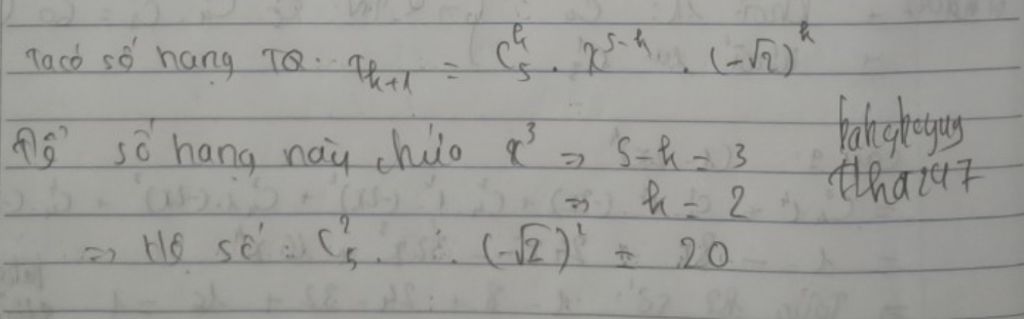 Ta có số hạng TQ: T_{k+1} = C_5^k . x^{5-k} . (-√2)^k
Để số hạng này chứa x^3 => 5-k = 3
=> k = 2
=> Hệ số: C_5^2 . (-√2)^2 = 20